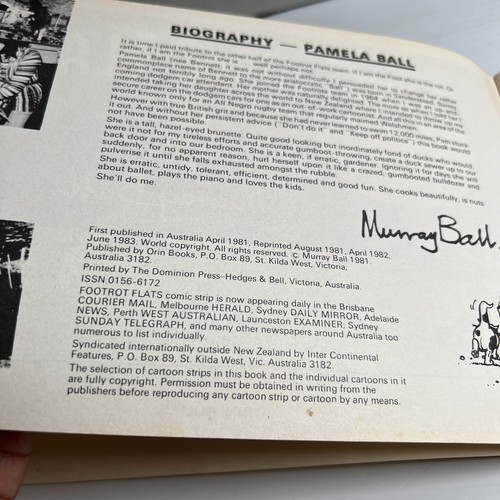 BIOGRAPHY — PAMELA BALL
It is time I paid tribute to the other half of the Footrot Flats team. If I am the Foot she is the rot. Or
rather, if I am the Footrot she is
Pamela Ball (nee Bennett)
commonplace name of Bennett to the more aristocratic 'Ball'
England not terribly long ago. She joined the
coming dodgem car attendant. Her mother was naturally delighted. The moment when I told her I
intended taking her daughter across the world to New Zealand
secure career on the dodgem cars for one as an out-of-work cartoonist.
world known only for an All Negro rugby team that regularly trampled
However with true British grit and because she had never learned to swim 12,000 miles, Pam stuck
it out. And without her persistent advice ("Don't do it" and "Keep off politics") this book would
not have been possible.
She is a tall, hazel-eyed brunette. Quite good looking but inordinately fond of ducks who would,
were it not for my tireless efforts and accurate gumboot-throwing, create a duck sewer up to our
back door and into our bedroom. She is a keen, if erratic, gardener. Ignoring it for days she will
suddenly, for no apparent reason, hurl herself upon it like a crazed, gumbooted bulldozer and
pulverise it until she falls exhausted amongst the rubble.
She is erratic, untidy, tolerant, efficient, determined and good fun. She cooks beautifully, is nuts
about ballet, plays the piano and loves the kids.
She'll do me.
Murray Ball.
First published in Australia April 1981, Reprinted August 1981, April 1982,
June 1983. World copyright. All rights reserved. c. Murray Ball 1981.
Published by Orin Books, P.O. Box 89, St. Kilda West, Victoria,
Australia 3182.
Printed by The Dominion Press–Hedges & Bell, Victoria, Australia.
ISSN 0156-6172
FOOTROT FLATS comic strip is now appearing daily in the Brisbane
COURIER MAIL, Melbourne HERALD, Sydney DAILY MIRROR, Adelaide
NEWS, Perth WEST AUSTRALIAN, Launceston EXAMINER; Sydney
SUNDAY TELEGRAPH, and many other newspapers around Australia too
numerous to list individually.
Syndicated internationally outside New Zealand by Inter Continental
Features, P.O. Box 89, St. Kilda West, Vic. Australia 3182.
The selection of cartoon strips in this book and the individual cartoons in it
are fully copyright. Permission must be obtained in writing from the
publishers before reproducing any cartoon strip or cartoon by any means.